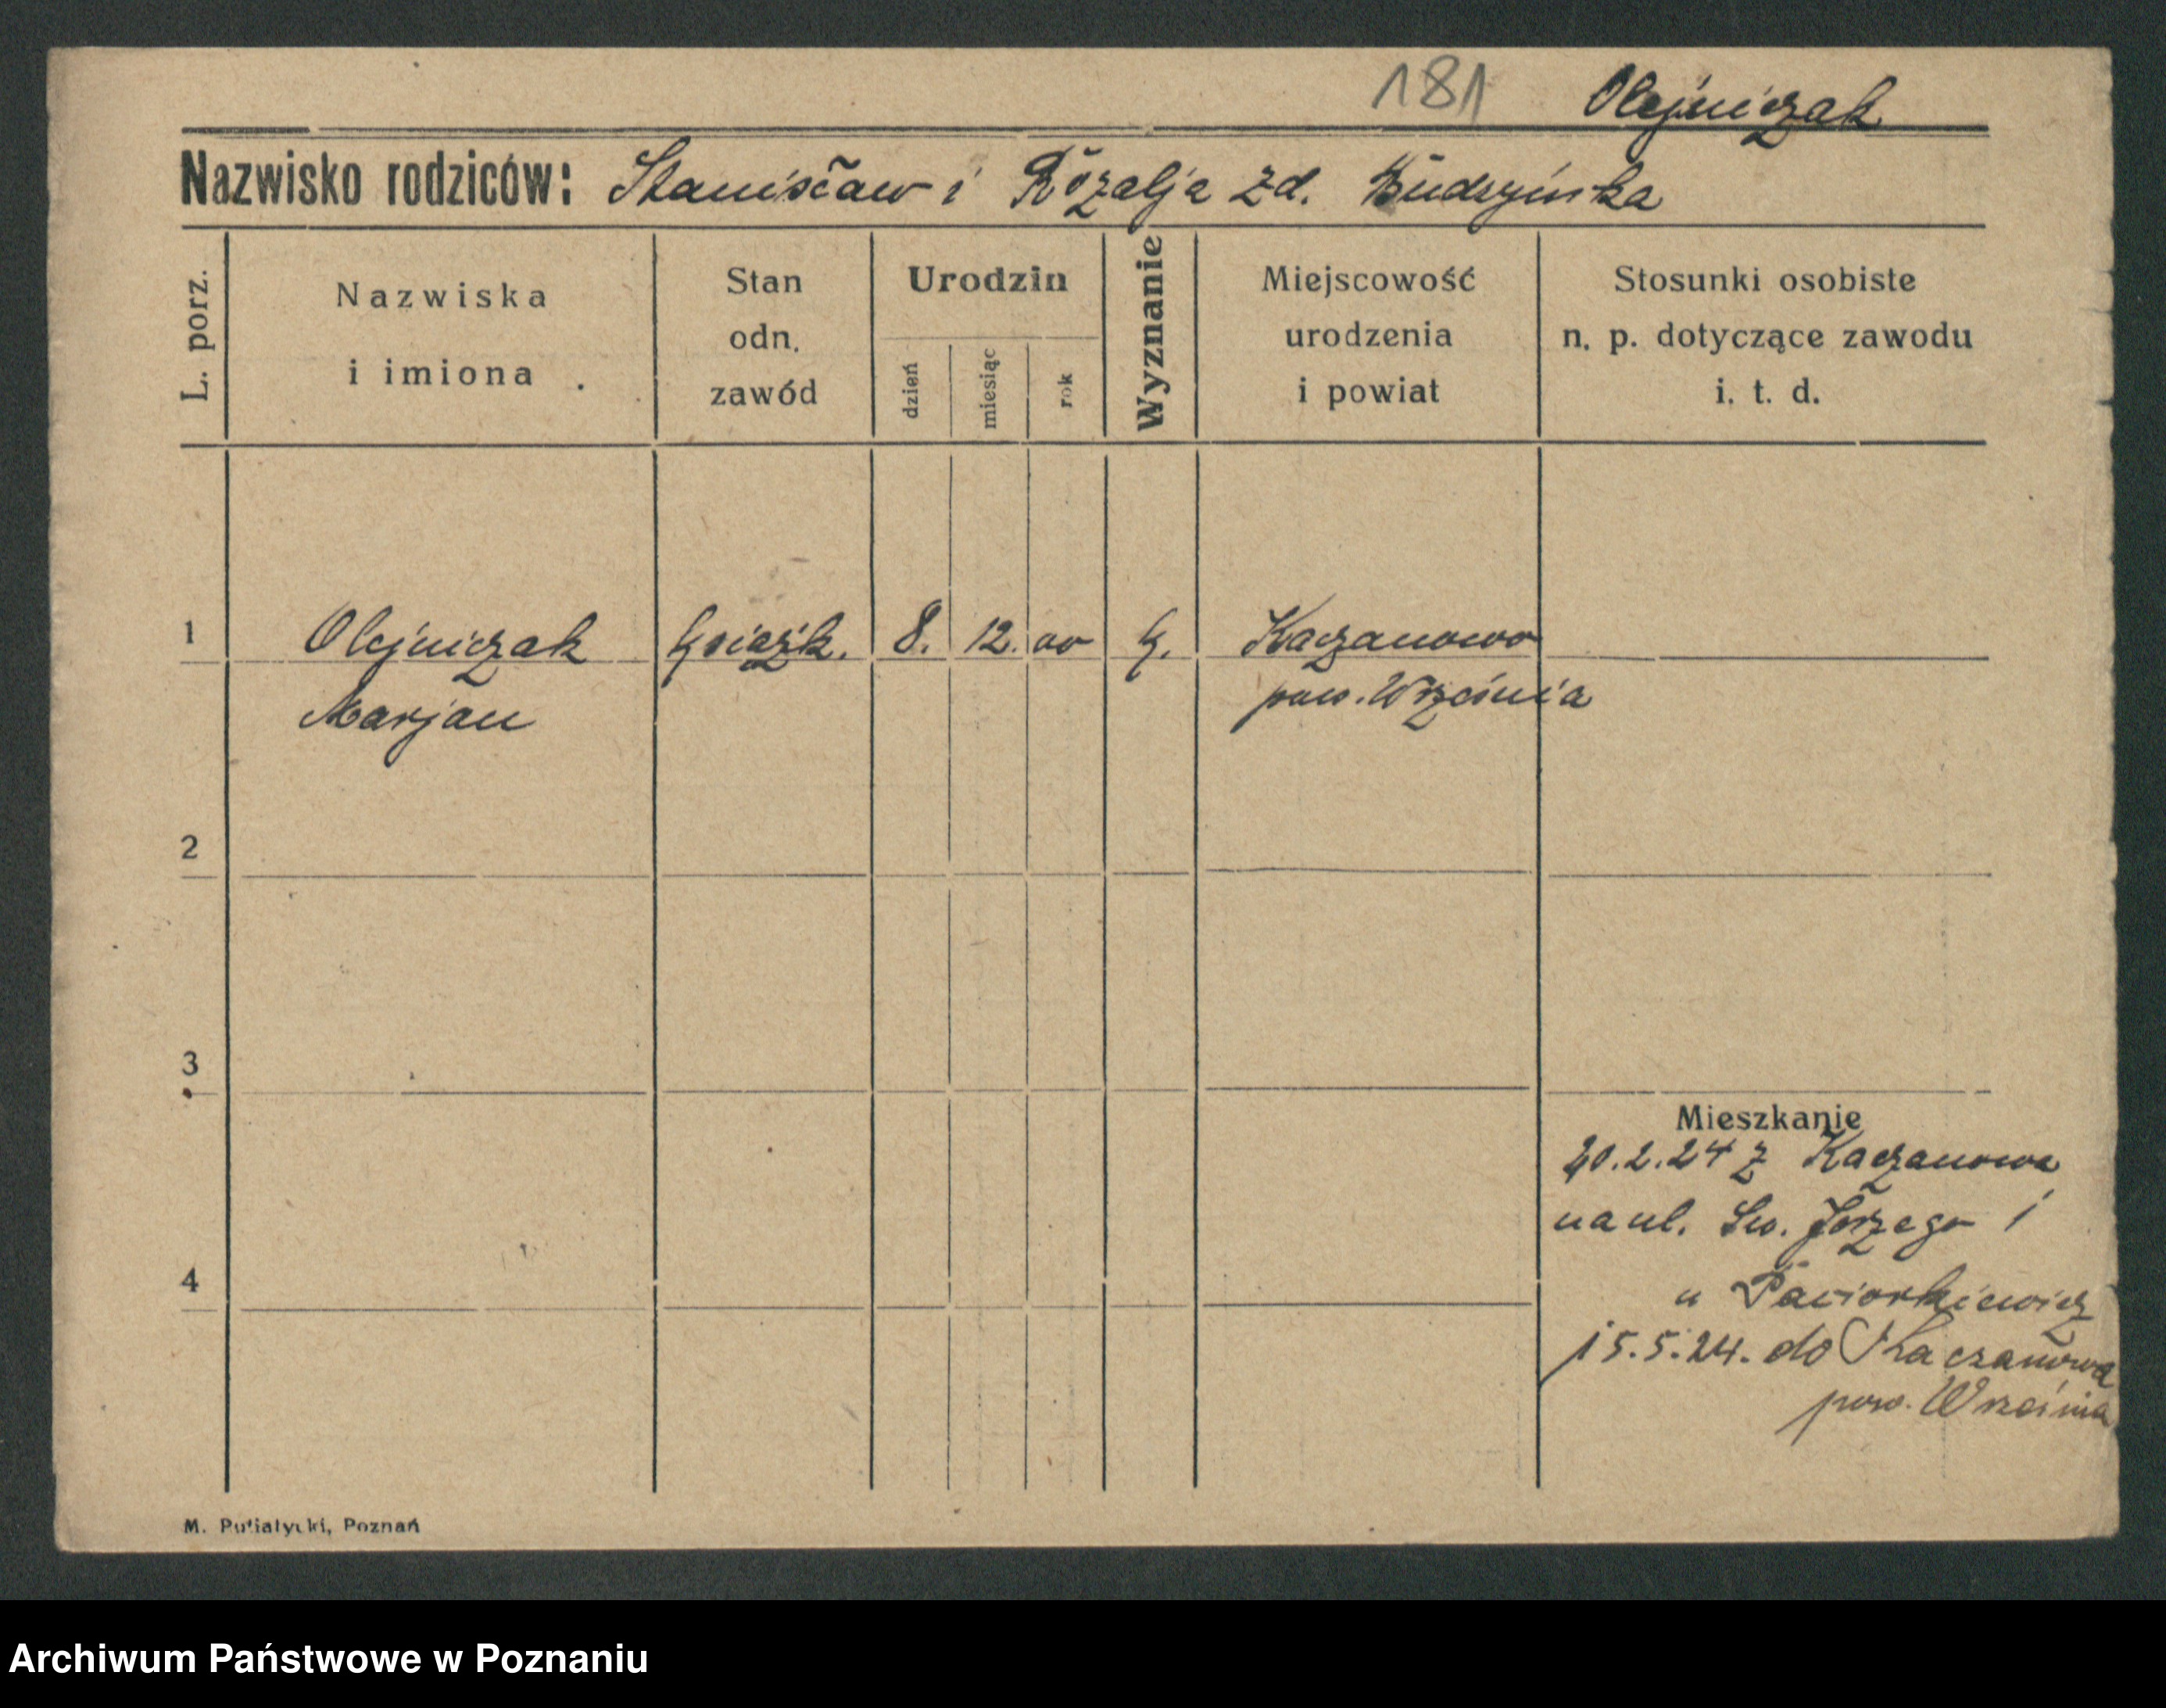 181 Olejniczak
Nazwisko rodziców: Stanisław i Rozalja zd. Budzyńska
L. porz.
Nazwiska
i imiona
Stan
odn.
zawód
Urodzin
dzień
miesiąc
rok
Wyznanie
Miejscowość
urodzenia
i powiat
Stosunki osobiste
n. p. dotyczące zawodu
i. t. d.
1 Olejniczak 8. 12. 00 Kaczanowo
Marjan pow. Września
2
3
Mieszkanie
20.2.24 z Kaczanowa
na ul. Św. Jerzego 1
4
u Paciorkiewicz
15.5.24. do Kaczanowa
pow. Września
M. Putiatycki, Poznań
Archiwum Państwowe w Poznaniu